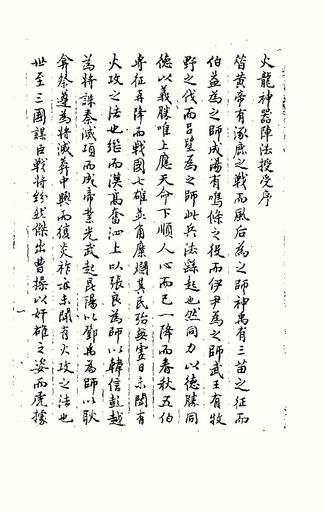 火龍神器陣法授受序
昔黃帝有涿鹿之戰而風后為之師神禹有三苗之征而
伯益為之師成湯有鳴條之役而伊尹為之師武王有牧
野之伐而呂望為之師此兵法蘇起也然同力以德勝同
德以義勝唯上應天命下順人心而已一降而春秋五伯
專征再降而戰國七雄並角糜爛其民殆無寧日未聞有
火攻之法也継而漢高奮泗上以張良為師以韓信彭越
為將誅秦滅項而成帝業光武起昆陽以鄧禹為師以耿
弇祭遵為將滅莽中興而復炎祚亦未聞有火攻之法也
世至三國謀臣戰將紛然傑出曹操以奸雄之姿而虎據
一